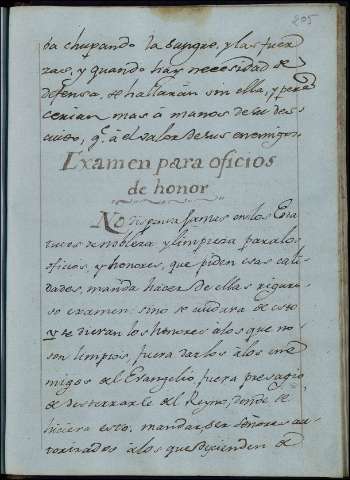 205
ba chupando la sangre, y las fuer
zas, y quando hay necesidad de
defensa, se hallarán sin ella, y pere
cerian mas á manos de su des
cuido, q.e á el valor de sus enemigos.
Examen para oficios
de honor
No dispensa Jamas en los Esta
tutos de nobleza y limpieza para los
oficios, y honores, que piden esas cali
dades, manda hacer de ellas riguro
so examen: sino se cuidara de esto
y se dieran los honores á los que no
son limpios, fuera darlos á los ene
migos del Evangelio, fuera presagio
de desterrarle del Reyno, donde se
hiciera esto, mandar, ser señores au
torizados á los que descienden de